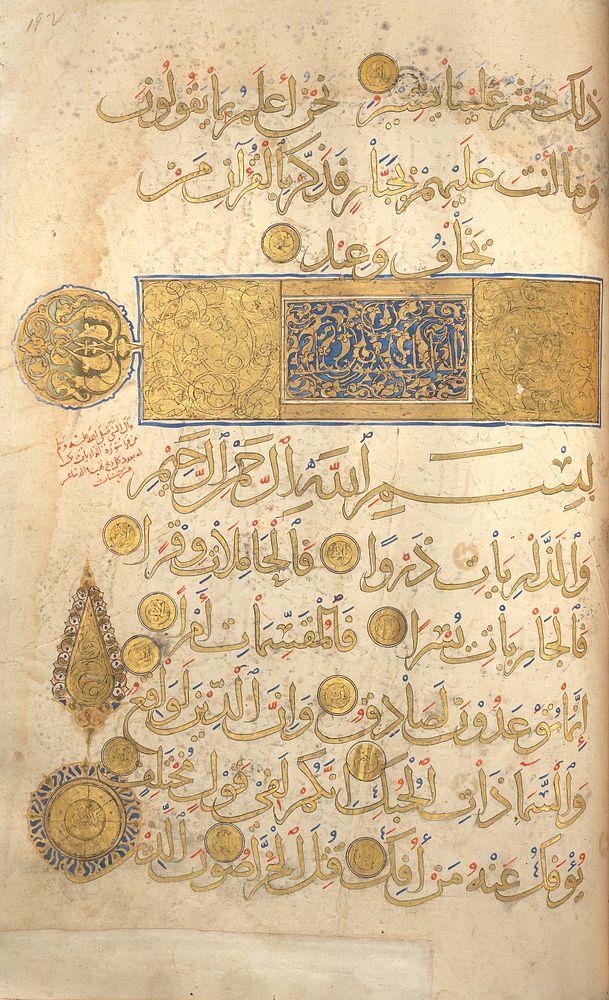 ذَٰلِكَ حَشْرٌ عَلَيْنَا يَسِيرٌ نَحْنُ أَعْلَمُ بِمَا يَقُولُونَ
وَمَا أَنْتَ عَلَيْهِمْ بِجَبَّارٍ فَذَكِّرْ بِالْقُرْآنِ مَنْ
يَخَافُ وَعِيدِ
قال النبي صلى الله عليه وسلم
من قرأ سورة الذاريات
عشر حسنات
بِسْمِ اللَّهِ الرَّحْمَٰنِ الرَّحِيمِ
وَالذَّارِيَاتِ ذَرْوًا فَالْحَامِلَاتِ وِقْرًا
فَالْجَارِيَاتِ يُسْرًا فَالْمُقَسِّمَاتِ أَمْرًا
إِنَّمَا تُوعَدُونَ لَصَادِقٌ وَإِنَّ الدِّينَ لَوَاقِعٌ
وَالسَّمَاءِ ذَاتِ الْحُبُكِ إِنَّكُمْ لَفِي قَوْلٍ مُخْتَلِفٍ
يُؤْفَكُ عَنْهُ مَنْ أُفِكَ قُتِلَ الْخَرَّاصُونَ الَّذِينَ